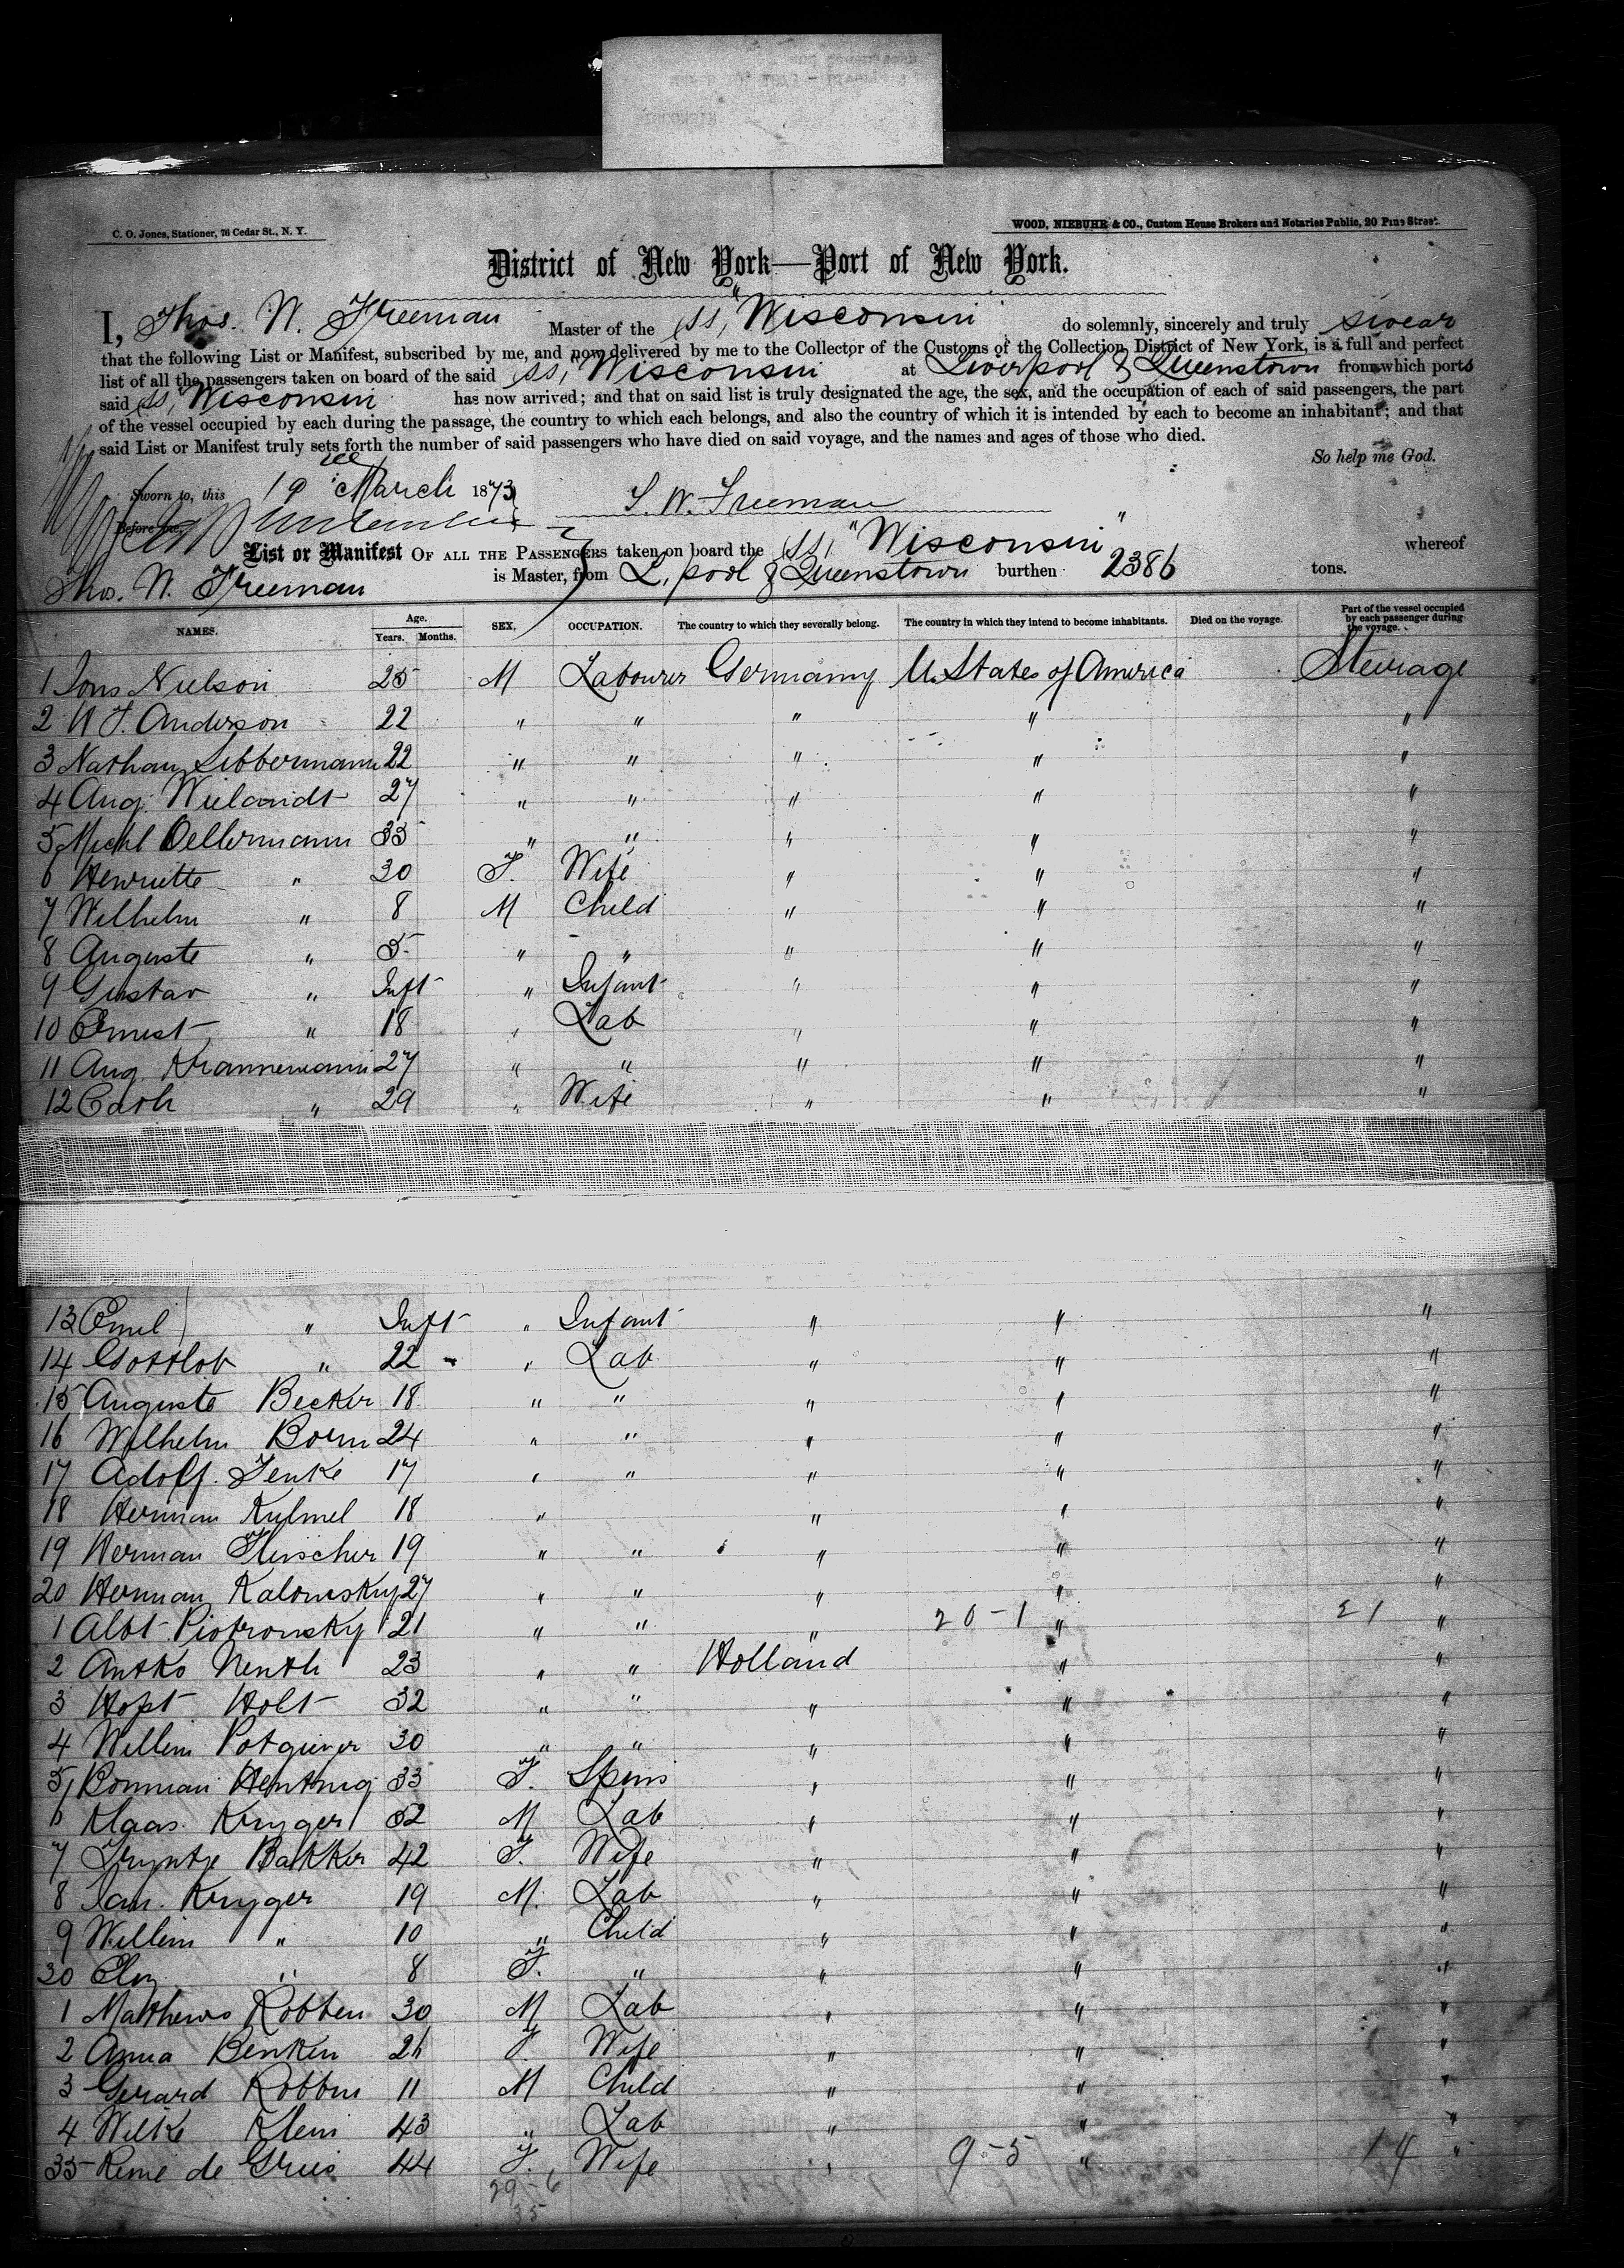 C. O. Jones, Stationer, 76 Cedar St., N. Y.
WOOD, NIEBUHR & CO., Custom House Brokers and Notaries Public, 20 Pine Street.
District of New York—Port of New York.
I, Thos. W. Freeman Master of the SS, "Wisconsin do solemnly, sincerely and truly swear
that the following List or Manifest, subscribed by me, and now delivered by me to the Collector of the Customs of the Collection District of New York, is a full and perfect
list of all the passengers taken on board of the said SS, Wisconsin at Liverpool & Queenstown from which ports
said SS, Wisconsin has now arrived; and that on said list is truly designated the age, the sex, and the occupation of each of said passengers, the part
of the vessel occupied by each during the passage, the country to which each belongs, and also the country of which it is intended by each to become an inhabitant; and that
said List or Manifest truly sets forth the number of said passengers who have died on said voyage, and the names and ages of those who died.
So help me God.
Sworn to, this 19 March 1873
T. W. Freeman
Before me,
List or Manifest OF ALL THE PASSENGERS taken on board the SS, "Wisconsin" whereof
Thos. W. Freeman is Master, from L.pool & Queenstown burthen 2386 tons.
NAMES. Age. Years. Months. SEX, OCCUPATION. The country to which they severally belong. The country in which they intend to become inhabitants. Died on the voyage. Part of the vessel occupied by each passenger during the voyage.
1 Jons Nielson 25 M Labourer Germany U. States of America Steerage
2 N J. Anderson 22 " " " " "
3 Nathan Libbermann 22 " " " " "
4 Aug. Wielandt 27 " " " " "
5 Michl Oellermann 33 " " " " "
6 Henriette " 30 F. Wife " " "
7 Wilhelm " 8 M Child " " "
8 Auguste " 5 " " " " "
9 Gustav " Inft " Infant " " "
10 Ernest " 18 " Lab " " "
11 Aug. Krannemann 27 " " " " "
12 " 29 " Wife " " "
13 Emil " Inft " Infant " " "
14 Gottlob " 22 " Lab " " "
15 Auguste Becker 18 " " " " "
16 Wilhelm Born 24 " " " " "
17 Adolf. Jenke 17 " " " " "
18 Herman Kulmel 18 " " " "
19 Herman Fleischer 19 " " " " "
20 Herman Kalowsky 27 " " " " "
1 Albt Piotronsky 21 " " " 20-1 " 21 "
2 Antko Nenth 23 " " Holland " "
3 Hopt Holt 32 " " " " "
4 Willem Potgieter 30 " " " " "
5 Hentnig 33 F. Spins " " "
6 Klaas. Kruger 52 M Lab " " "
7 Tryntje Bakker 42 F. Wife " " "
8 Jan. Kruger 19 M. Lab " " "
9 Willem " 10 " Child " " "
30 " 8 F. " " " "
1 Matthews Robben 30 M Lab " " "
2 Anna Benken 26 F. Wife " " "
3 Gerard Robben 11 M Child " " "
4 Wilke Klein 43 " Lab " " "
35 de Gries 44 F. Wife " 9-5 " 14 "
29-6
35